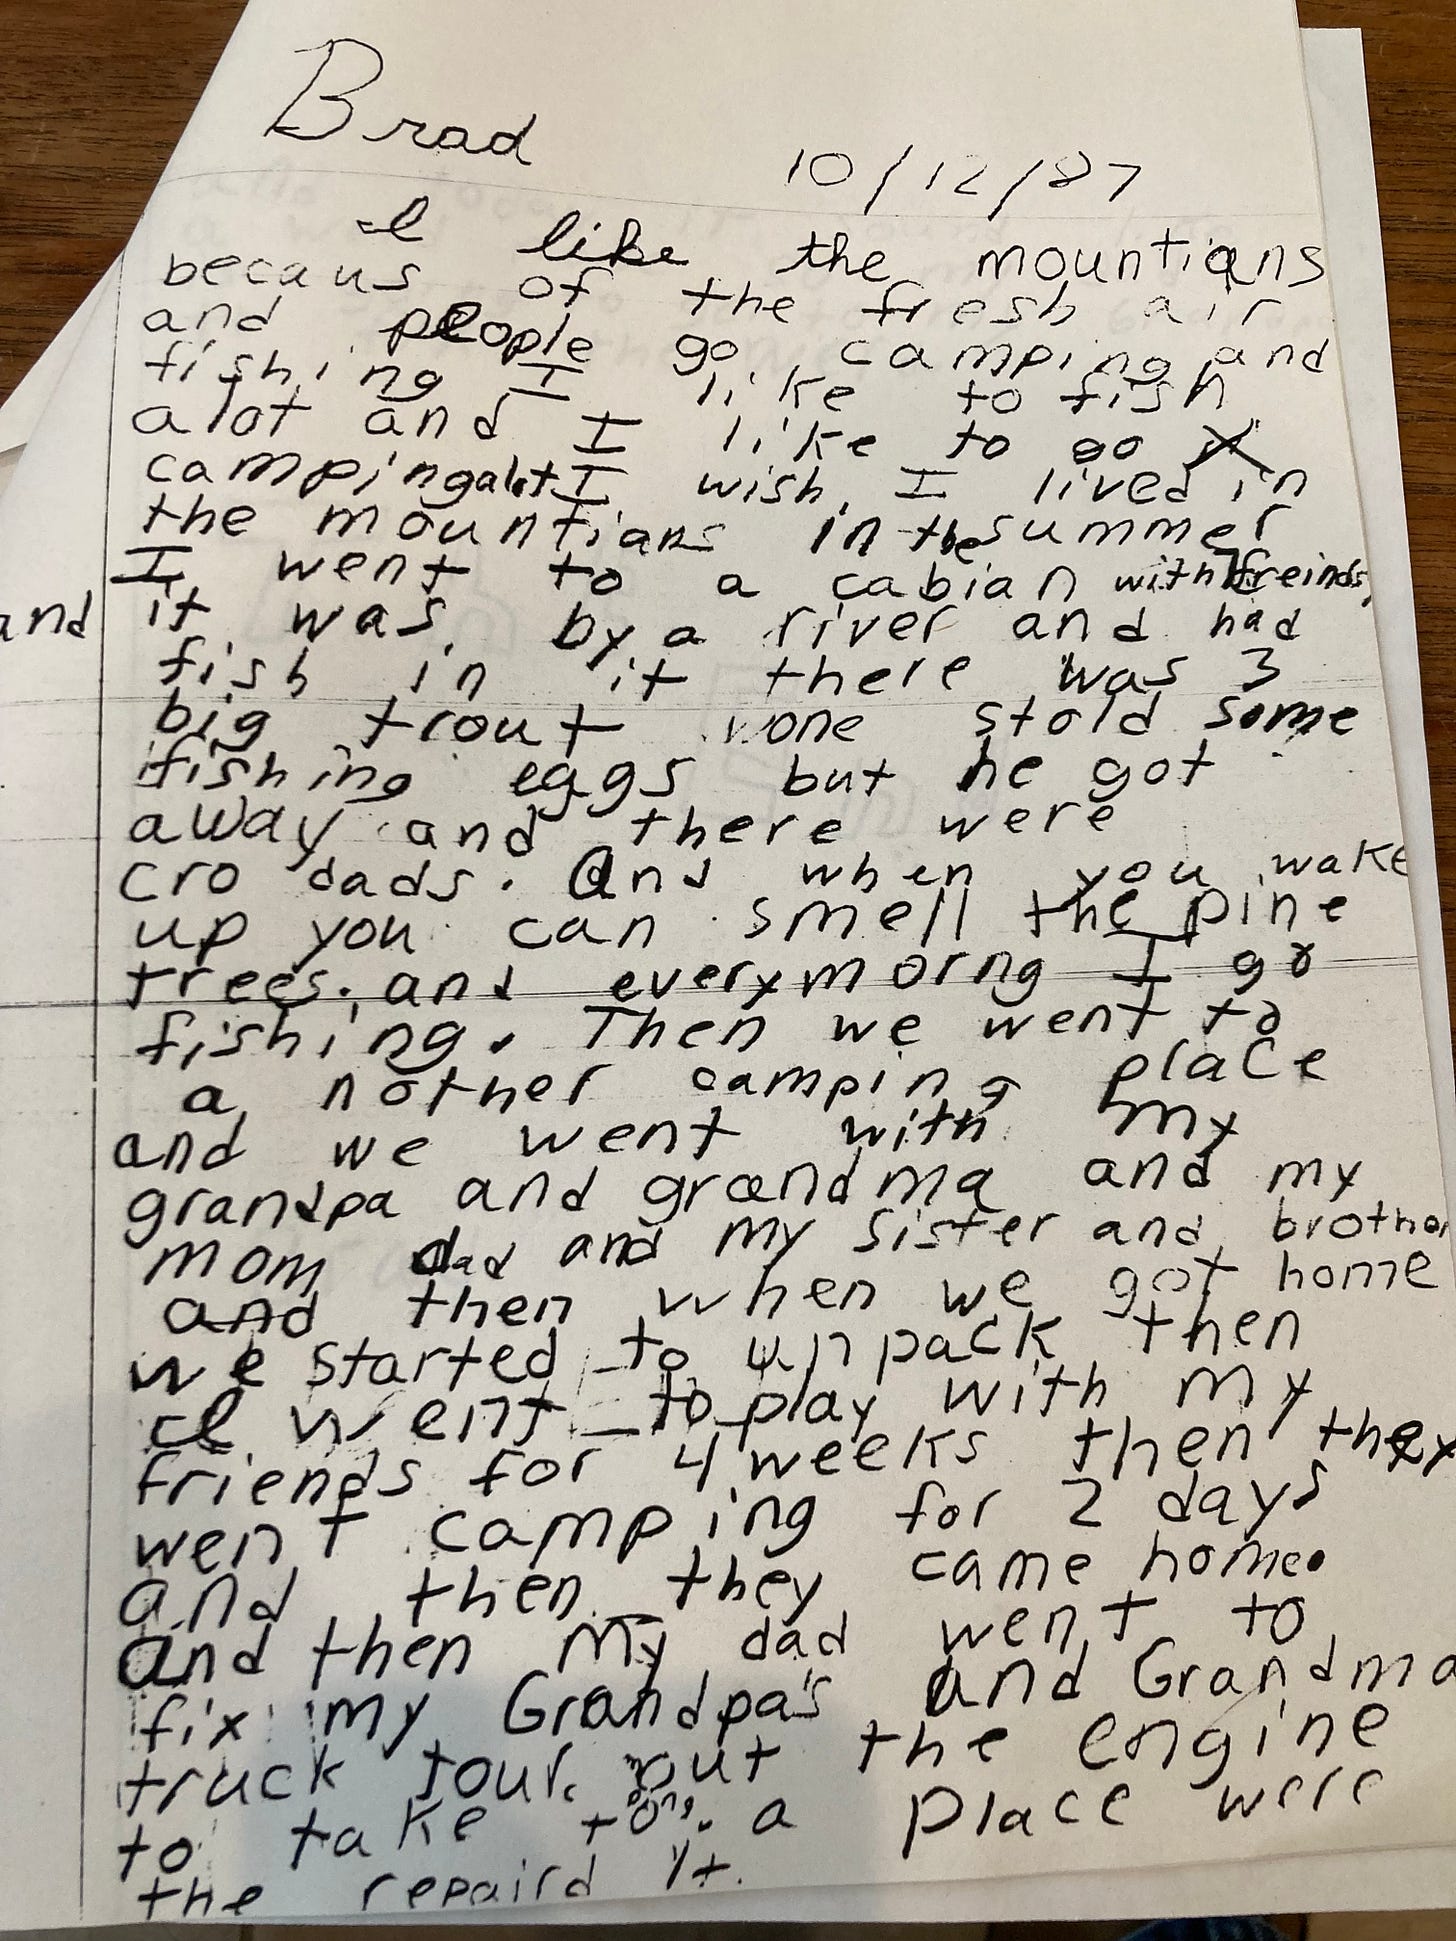 Brad
10/12/87
I like the mountians
becaus of the fresh air
and people go camping and
fishing I like to fish
alot and I like to go
campingalot I wish I lived in
the mountians in the summer
I went to a cabian with freinds,
and it was by a river and had
fish in it there was 3
big trout one stold some
fishing eggs but he got
away and there were
cro dads. And when you wake
up you can smell the pine
trees. and everymorng I go
fishing. Then we went to
a nother camping place
and we went with my
grandpa and grandma and my
mom dad and my sister and brother
and then when we got home
we started to unpack then
I went to play with my
friends for 4 weeks then they
went camping for 2 days
and then they came home.
and then my dad went to
fix my Grandpa's and Grandma
truck out the engine
to take a place were
the repaird it.